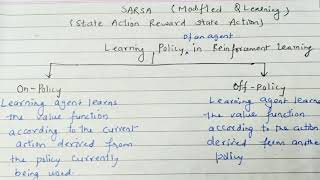 SARSA (Modified Q Learning)
(State Action Reward State Action)
of an agent
Learning Policy in Reinforcement Learning
On-Policy
Learning agent learns
the value function
according to the current
action derived from
the policy currently
being used.
Off-Policy
Learning agent learns
the value function
according to the action
derived from another
policy